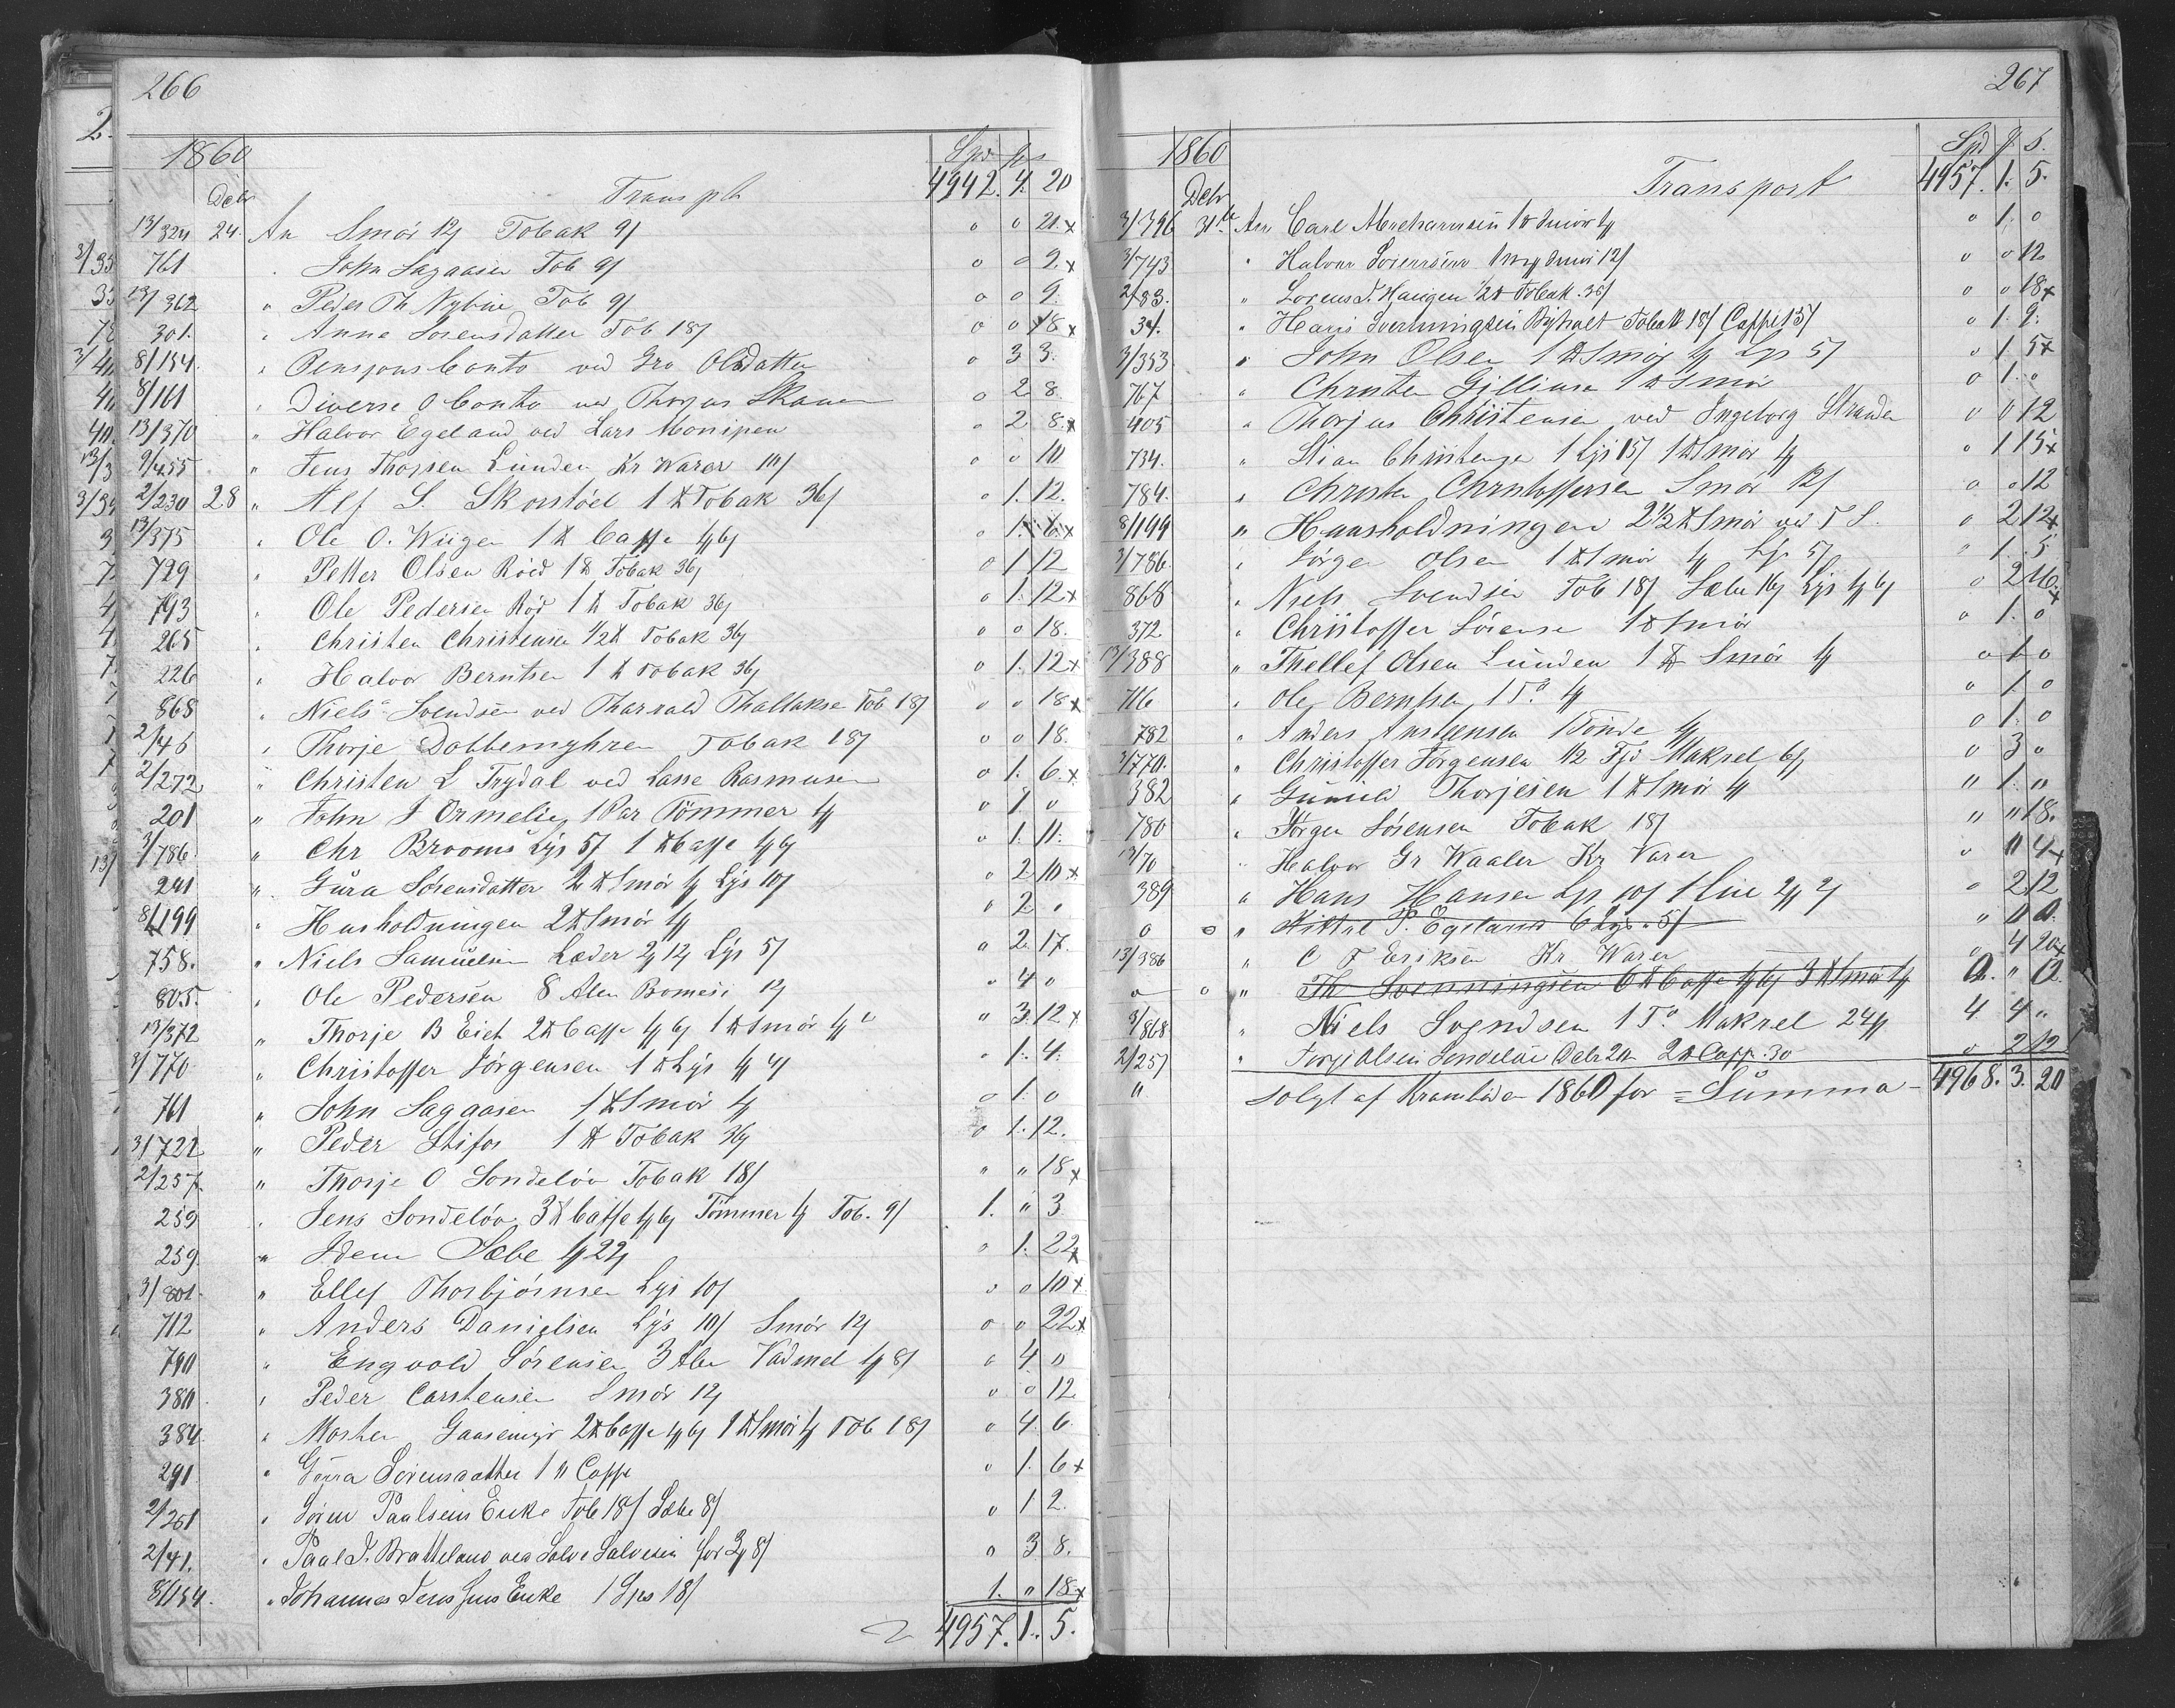 266
1860 Spd ƒ s
Decbr Transpt 4942. 4. 20
13/324 24. An Smör 12ƒ Tobak 9ƒ o o 21.x
761 John Sagaasen Tob 9ƒ o o 9.x
13/362 " Peder Th Nybue Tob 9ƒ o o 9.
301. " Anne Sorensdatter Tob 18ƒ o o 18x
8/154. " Pensjons Conto ved Gro Olsdatter o 3 3.
8/161 " Diverse Conto ved Thorjus o 2 8
13/370 " Halvor Egeland ved Lars Monipen o 2 8.x
9/455 " Jens Thorsen Lunden Kr Warer 10/ o o 10
2/230 28 " Alf S. Skorstöel 1 ℔ Tobak 36ƒ o 1. 12.
13/375 " Ole O. Wiigen 1 ℔ Caffe 1ƒ 6ƒ o 1. 6.x
729 " Petter Olsen Röed 1 ℔ Tobak 36ƒ o 1 12
793 " Ole Pedersen Röd 1 ℔ Tobak 36ƒ o 1. 12x
265 " Christen Christensen 1/2 ℔ Tobak 36ƒ o o 18.
226 " Halvor Berntsen 1 ℔ Tobak 36ƒ o 1. 12x
868 " Niels Svendsen ved Tharald Thallakse Tob 18ƒ o o 18x
2/46 " Thorje Dobbemyhren Tobak 18ƒ o o 18.
2/272 " Christen L Trydal ved Lasse Rasmusen o 1. 6.x
201 " John J Ormelie 1 Par Tömmer 1ƒ o 1 o
3/786. " Chr Brooms Lys 5/ 1 ℔ Caffe 1ƒ 6ƒ o 1. 11.
291 " Gura Sörensdatter 2 ℔ Smör 1ƒ Lys 10/ o 2 10.x
8/199 " Husholdningen 2 ℔ Smör 1ƒ o 2 "
758. " Niels Samuelsen Læder 2ƒ 12ƒ Lys 5/ o 2 17.
805. " Ole Pedersen 8 Alen Bomesi 12ƒ o 4 o
13/372 " Thorje B Eiet 2 ℔ Caffe 1ƒ 6ƒ 1 ℔ Smör 1ƒ " 3. 12x
3/770 " Christoffer Jörgensen 1 ℔ Lys 1ƒ 4/ o 1. 4.
761 " John Sagaasen 1 ℔ Smör 1ƒ o 1. o
3/722 " Peder Stifos 1 ℔ Tobak 36ƒ o 1. 12.
2/257 " Thorje O Sondelöv Tobak 18/ " " 18x
259 " Jens Sondelöv 3 ℔ Caffe 1ƒ 6ƒ Tömmer 1ƒ Tob. 9/ 1. " 3
259. " Idem Sæbe 1ƒ 22ƒ o 1. 22x
3/801. " Ellef Thorbjörnsen Lys 10/ o o 10x
712 " Anders Danielsen Lys 10/ Smör 12ƒ o o 22x
790 " Engvold Sörensen 3 Alen Vadmel 1ƒ 8/ o 4 "
380 " Peder Carstensen Smör 12ƒ o o 12
384. " Morten Gaasemyr 2 ℔ Caffe 1ƒ 6ƒ 1 ℔ Smör 1ƒ Tob 18/ o 4. 6
291 " Gurra Sörensdatter 1 " Caffe o 1. 6x
2/201 " Sören Paulsens Enke Tob 18/ Sæbe 8/ o 1 2.
2/41. " Paal J. Bratteland ved Salve Salvesen for 3ƒ 8/ o 3 8.
8/154. " Johannes Jens Jens Enke 1 Spd 18/ 1. " 18x
4957. 1. 5.
267
1860 Spd ƒ s.
Decbr Transport 4957. 1. 5.
3/396 31te An Carl Abrehamsen 1 ℔ Smör 1ƒ o 1. o
3/743 " Halvor Sörensen Smör 12/ o o 12
2/83. " Lorens J. Haugen 1/2 ℔ Tobak. 36/ o o 18x
34. " Hans Svenningsen Byholt Tobak 18/ Caffe 15/ o 1. 9.
3/353 " John Olsen 1 ℔ Smör 1ƒ Lys 5/ o 1 5x
767 " Christen Gilliusen 1 ℔ Smör o 1. o
405 " Thorjus Christensen ved Ingeborg Stranden o o 12
734. " Stian Christensen 1 Lys 15/ 1 ℔ Smör 1ƒ o 1 15x
784. " Christen Christoffersen Smör 12/ o o 12
8/199 " Huusholdningen 2 1/2 ℔ Smör ved T S. o 2 12x
3/786. " Jörgen Olsen 1 ℔ Smör 1ƒ Lys 5/ o 1. 5
868 " Niels Svendsen Tob 18/ Sæbe 16ƒ Lys 1ƒ 6ƒ o 2 16x
372. " Christoffer Sörense 1 ℔ Smör o 1. o
13/388 " Thellef Olsen Lunden 1 ℔ Smör 1ƒ o 1 o
716 " Ole Berntsen 1 Do 1ƒ o 1. o
782 " Anders Anstensen 1 Tönde 1ƒ o 1. o
3/770. " Christoffer Jörgensen 1/2 Fjd Makrel 6ƒ o 3 o
382 " Gunuld Thorjesen 1 ℔ Smör 1ƒ " 1. "
780 " Jörgen Sörensen Tobak 18/ " " 18.
13/70 " Halvor Gr Waaler Kr Varer o 11 4x
389 " Hans Hansen Lys 10/ 1 Line 2ƒ 2/ o 2 12
o o " Kittel P. Egeland 6 Lys. 5/ " 0 0.
13/386 " C F Eriksen Kr. Warer o 4 20x
o o " Th Svenningsen 6 ℔ Caffe 1ƒ 6ƒ 3 ℔ Smör 1ƒ 0. " 0
3/868 " Niels Svendsen 1 To Makrel 24ƒ 4. 4 "
2/257 " Terje Olsen Sondelöv Decbr 24 2 ℔ Caffe. 30 o 2 12
" Solgt af Kramboden 1860 for = Summa - 4968. 3. 20